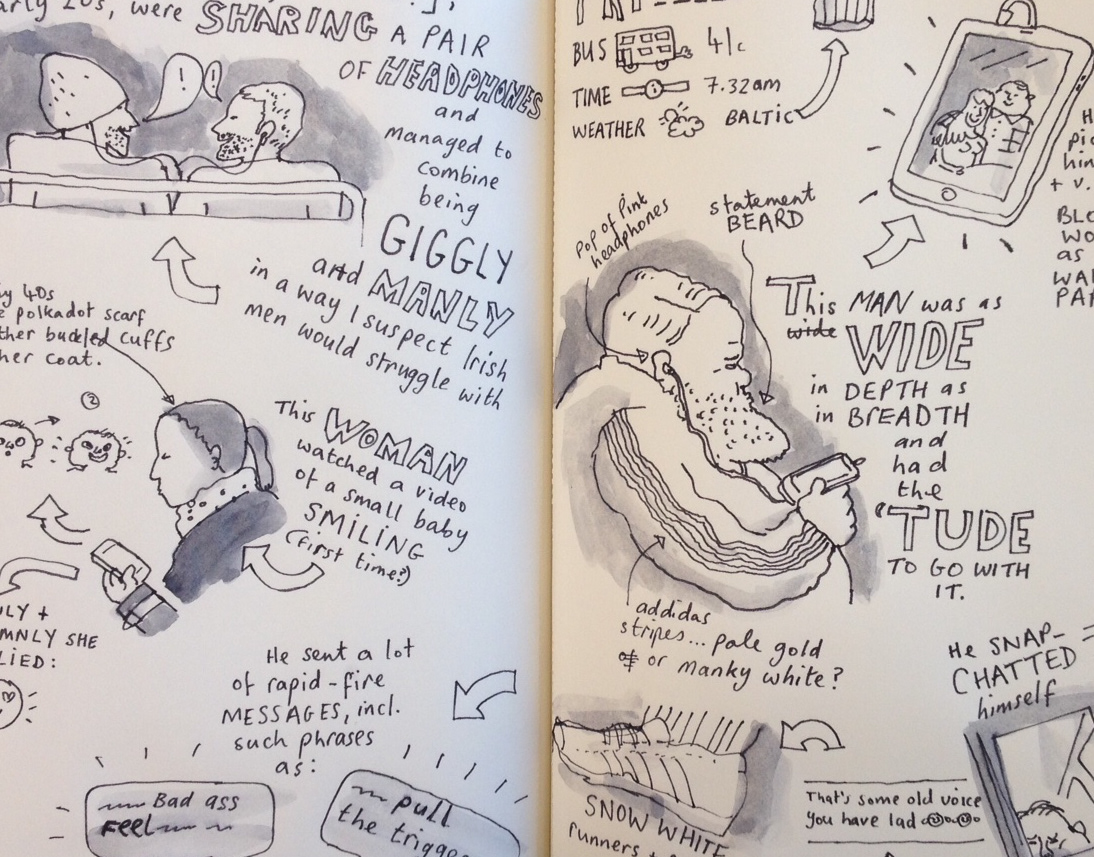 early 20s, were SHARING A PAIR
OF HEADPHONES
and
managed to
combine
being
GIGGLY
and MANLY
in a way I suspect Irish
men would struggle with
! !
40s
polkadot scarf
buckled cuffs
her coat.
②
This WOMAN
watched a video
of a small baby
SMILING
(first time?)
+
SHE
He sent a lot
of rapid-fire
MESSAGES, incl.
such phrases
as:
Bad ass
FEEL
pull
the trigge
BUS 41c
TIME 7.32am
WEATHER BALTIC
pop of Pink
headphones
statement
BEARD
+ v.
as
This MAN was as
wide WIDE
in DEPTH as
in BREADTH
and
had
the
'TUDE
TO GO WITH
IT.
addidas
stripes... pale gold
or manky white?
He SNAP-
CHATTED
himself
SNOW WHITE
runners +
That's some old voice
you have lad